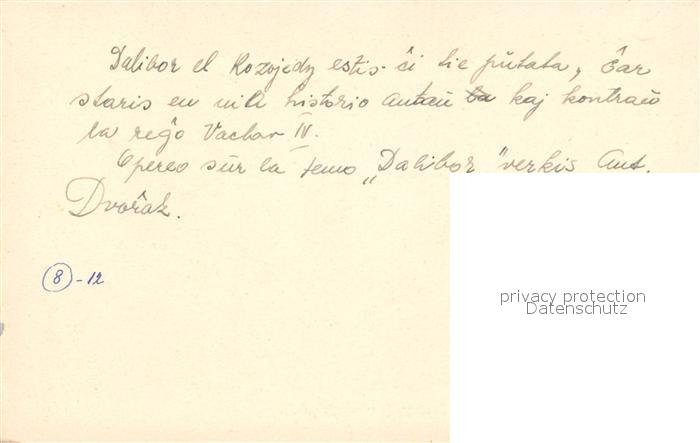 Dalibor el Kozojedy estis ĉi tie pŭtata, ĉar
staris en vili historio antaŭ la kaj kontraŭ
la reĝo Vaclav IV.
Opereo sur la temo „Dalibor" verkis Ant.
Dvořak.
8 - 12
privacy protection
Datenschutz